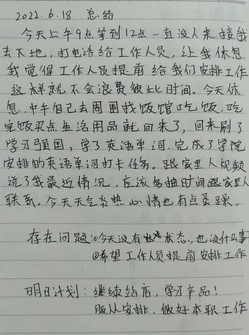 2022.6.18 总结
今天上午9点等到12点一直没人来接我
去下地,打电话给工作人员,让我休息,
我觉得工作人员提前给我们安排工作
这样就不会浪费彼此时间。今天休
息,中午自己去周围找饭馆吃饭,吃
完饭买点生活用品就回来了,回来刷了
学习强国,学习英语单词,完成了学院
安排的英语单词打卡任务。跟家里人视频
说了我最近情况,应该多抽时间跟家里人
联系。今天天气炎热,心情也有点烦躁。
存在问题:①今天没有状态,也没什么事
②希望工作人员提前安排工作
明日计划:继续驻店,学习产品!
服从安排,做好本职工作